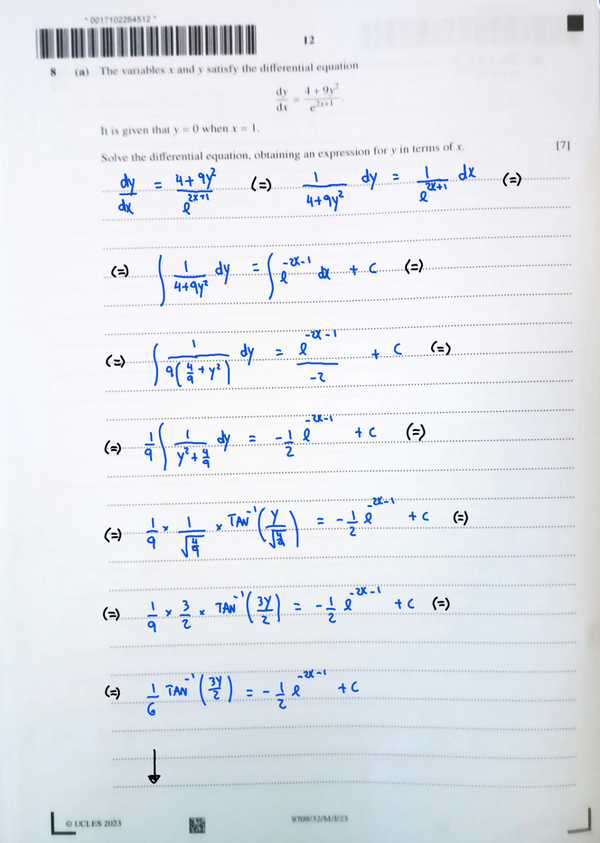 * 0017102264512 *
12
8 (a) The variables x and y satisfy the differential equation
dy/dx = (4 + 9y²)/e^(2x+1).
It is given that y = 0 when x = 1.
Solve the differential equation, obtaining an expression for y in terms of x. [7]
dy/dx = (4+9y²)/e^(2x+1) (=) 1/(4+9y²) dy = 1/e^(2x+1) dx (=)
(=) ∫ 1/(4+9y²) dy = ∫ e^(-2x-1) dx + C (=)
(=) ∫ 1/(9(4/9 + y²)) dy = e^(-2x-1)/(-2) + C (=)
(=) 1/9 ∫ 1/(y² + 4/9) dy = -1/2 e^(-2x-1) + C (=)
(=) 1/9 × 1/√(4/9) × TAN⁻¹(y/√(4/9)) = -1/2 e^(-2x-1) + C (=)
(=) 1/9 × 3/2 × TAN⁻¹(3y/2) = -1/2 e^(-2x-1) + C (=)
(=) 1/6 TAN⁻¹(3y/2) = -1/2 e^(-2x-1) + C
© UCLES 2023 9709/32/M/J/23